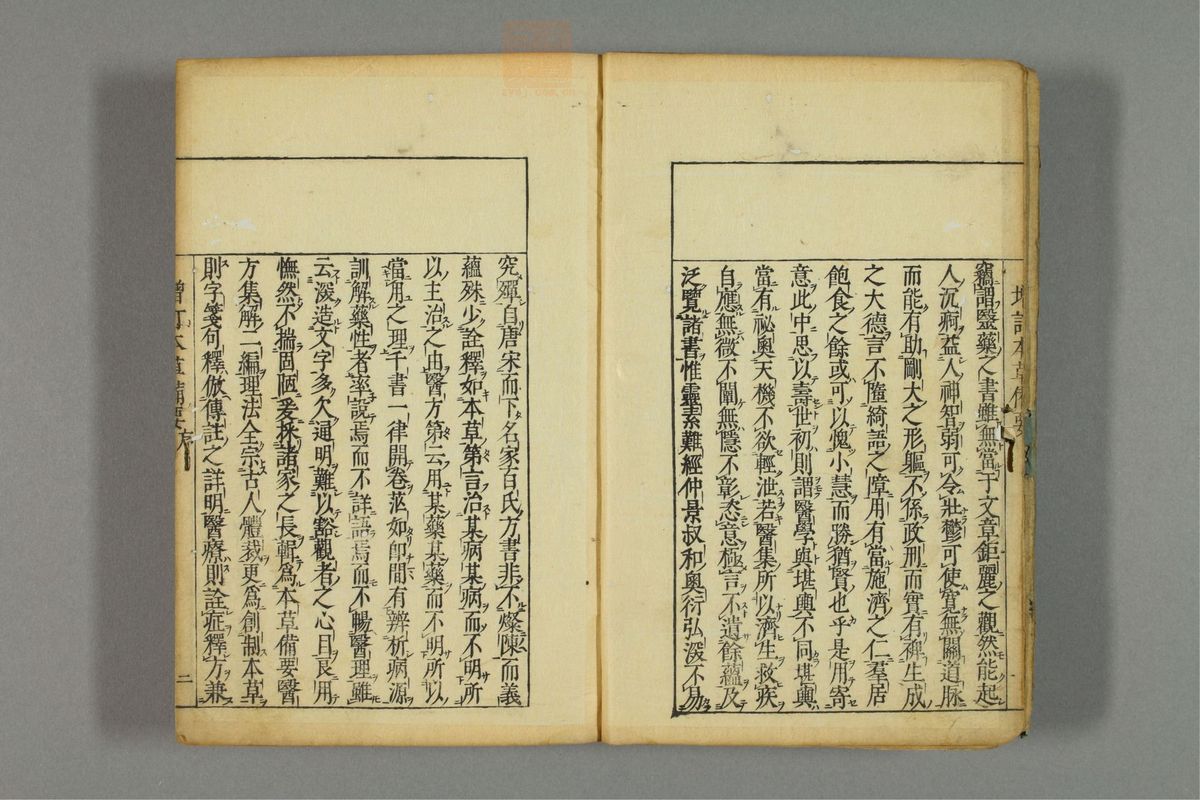 竊謂醫藥之書雖無當于文章鉅麗之觀然能起
人沉痾益人神智弱可令壯鬱可使寬無關道脉
而能有助剛大之形軀不係政刑而實有裨生成
之大德言不墮綺語之障用有當施濟之仁羣居
飽食之餘或可以愧小慧而勝猶賢也乎是用寄
意此中思以壽世初則謂醫學與堪輿不同堪輿
當有祕奧天機不欲輕泄若醫集所以濟生救疾
自應無微不闡無隱不彰恣意極言不遺餘蘊及
泛覽諸書惟靈素難經仲景叔和奧衍弘深不易
究殫自唐宋而下名家百氏方書非不燦陳而義
蘊殊少詮釋如本草第言治某病某病而不明所
以主治之由醫方第云用某藥某藥而不明所以
當用之理千書一律開卷茫如卽間有辨析病源
訓解藥性者率說焉而不詳語焉而不暢醫理雖
云深造文字多欠通明難以豁觀者之心目良用
憮然不揣固陋爰採諸家之長輯爲本草備要醫
方集解二編理法全宗古人體裁更爲創制本草
則字箋句釋倣傳註之詳明醫療則詮症釋方兼
二